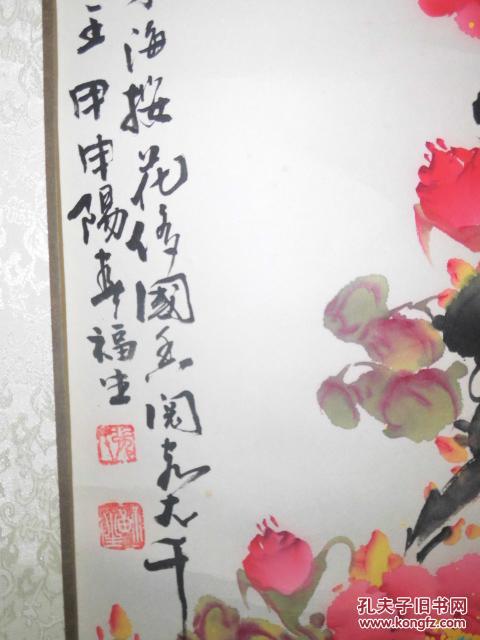 海撄花修國色閣知大千
主甲申陽春福生
孔夫子旧书网
www.kongfz.com